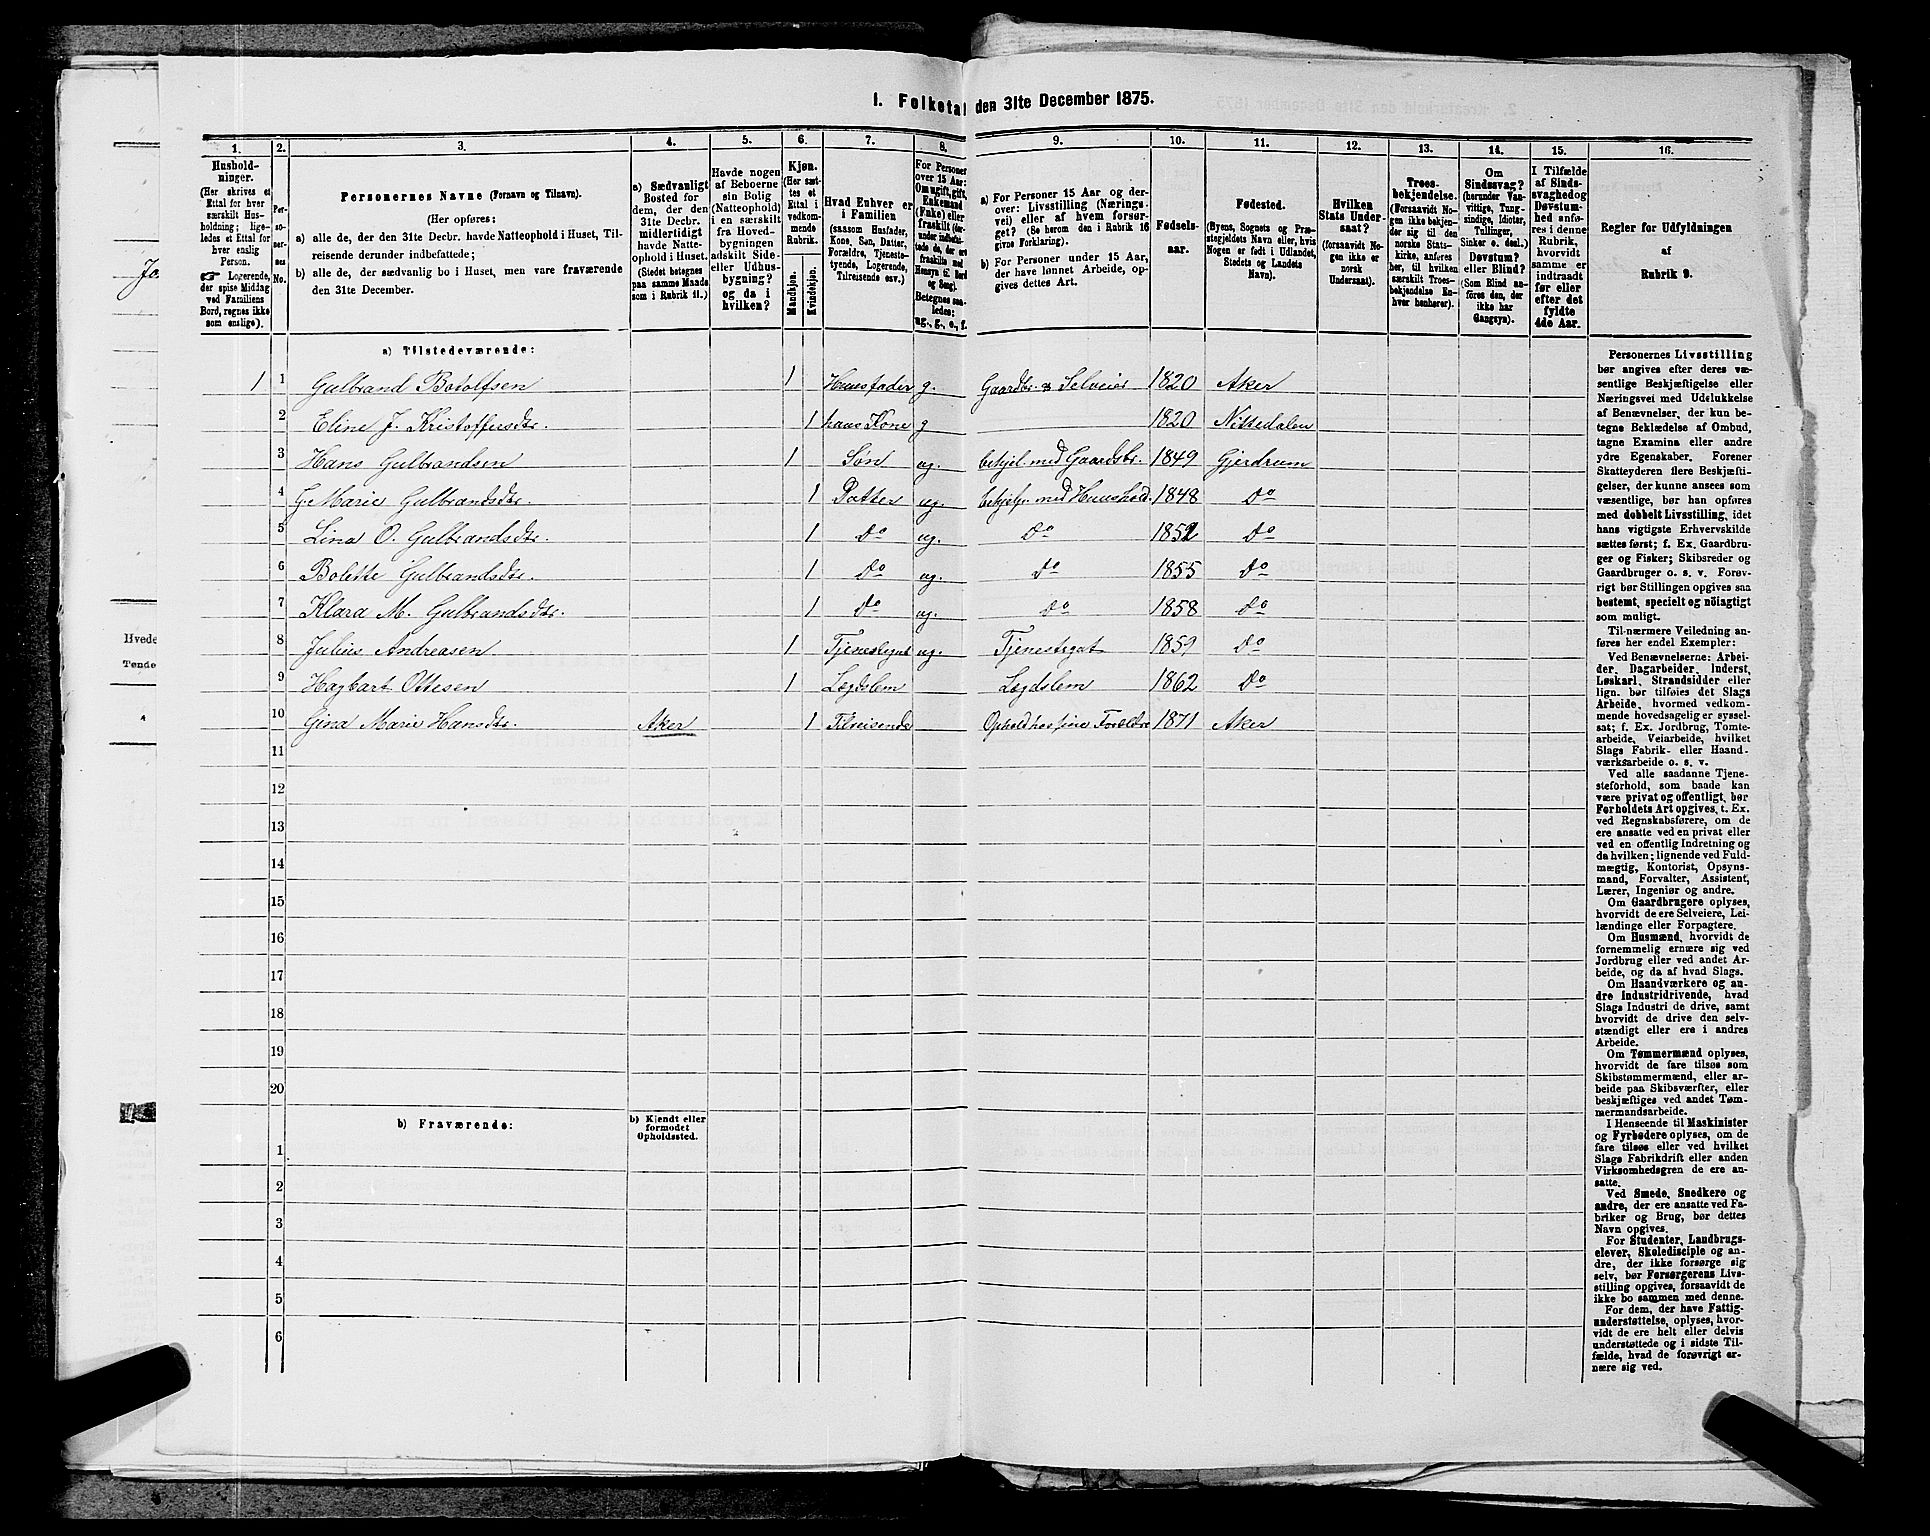 1. Folketal den 31te December 1875.
1. 2. 3. 4. 5. 6. 7. 8. 9. 10. 11. 12. 13. 14. 15. 16.
Husholdninger. (Her skrives et Ettal for hver særskilt Husholdning; ligeledes et Ettal for hver enslig Person. ☞ Logerende, der spise Middag ved Familiens Bord, regnes ikke som enslige).
Personernes No.
Personernes Navne (Fornavn og Tilnavn).
(Her opføres:
a) alle de, der den 31te Decbr. havde Natteophold i Huset, Tilreisende derunder indbefattede;
b) alle de, der sædvanlig bo i Huset, men vare fraværende den 31te December.
a) Sædvanligt Bosted for dem, der den 31te Decbr. midlertidigt havde Natteophold i Huset. (Stedet betegnes paa samme Maade som i Rubrik 11.)
Havde nogen af Beboerne sin Bolig (Natteophold) i en særskilt fra Hovedbygningen adskilt Side- eller Udhusbygning? og da i hvilken?
Kjøn. (Her sættes et Ettal i vedkommende Rubrik.
Mandkjøn. Kvindekjøn.
Hvad Enhver er i Familien (saasom Husfader, Kone, Søn, Datter, Forældre, Tjenestetyende, Logerende, Tilreisende osv.)
For Personer over 15 Aar: Om ugift, gift, Enkemand (Enke) eller fraskilt (derunder indbefattede de, der ere fraskilte med Hensyn til Bord og Seng). Betegnes saaledes: ug., g., e., f.
a) For Personer 15 Aar og derover: Livsstilling (Næringsvei) eller af hvem forsørget? (Se herom den i Rubrik 16 givne Forklaring).
b) For Personer under 15 Aar, der have lønnet Arbeide, opgives dettes Art.
Fødselsaar.
Fødested. (Byens, Sognets og Præstegjeldets Navn eller, hvis Nogen er født i Udlandet, Stedets og Landets Navn).
Hvilken Stats Undersaat? (forsaavidt Nogen ikke er norsk Undersaat).
Troesbekjendelse. (Forsaavidt Nogen ikke bekjender sig til den norske Statskirke, anføres her, til hvilken særskilt Troesbekjendelse Enhver henhører).
Om Sindssvag? (herunder Vanvittige, Tungsindige, Idioter, Tullinger, Sinker o. desl.) Døvstum? eller Blind? (Som Blind anføres den, der ikke har Gangsyn).
I Tilfælde af Sindssvaghed og Døvstumhed anføres i denne Rubrik, hvorvidt samme er indtraadt før eller efter det fyldte 4de Aar.
Regler for Udfyldningen af Rubrik 9.
a) Tilstedeværende:
1 1 Gulbrand Botolfsen 1 Huusfader g. Gaardbr. & Selveier 1820 Aker
2 Eline J. Kristoffersdtr. 1 hans Kone g 1820 Nittedalen
3 Hans Gulbrandsen 1 Søn ug. behjel. med Gaardsbr. 1849 Gjerdrum
4 J. Marie Gulbrandsdtr. 1 Datter ug. behjelp. med Huushold. 1848 Do
5 Lina O. Gulbrandsdtr. 1 Do ug. Do 1852 Do
6 Bolette Gulbrandsdtr. 1 Do ug. Do 1855 Do
7 Klara M. Gulbrandsdtr. 1 Do ug. Do 1858 Do
8 Julius Andreasen 1 Tjenestgut ug. Tjenestegut 1859 Do
9 Hagbart Ottesen 1 Lægdslem Lægdslem 1862 Do
10 Gina Marie Hansdtr. Aker 1 Tilreisende Ophold hos sine Forældre 1871 Aker
11
12
13
14
15
16
17
18
19
20
b) Fraværende: b) Kjendt eller formodet Opholdssted.
1
2
3
4
5
6
Personernes Livsstilling
bør angives efter deres væ-
sentlige Beskjæftigelse eller
Næringsvei med Udelukkelse
af Benævnelser, der kun be-
tegne Beklædelse af Ombud,
tagne Examina eller andre
ydre Egenskaber. Forener
Skatteyderen flere Beskjæfti-
gelser, der kunne ansees som
væsentlige, bør han opføres
med dobbelt Livsstilling, idet
hans vigtigste Erhvervskilde
sættes først; f. Ex. Gaardbru-
ger og Fisker; Skibsreder og
Gaardbruger o. s. v. Forøv-
rigt bør Stillingen opgives saa
bestemt, specielt og nöiagtigt
som muligt.
Til nærmere Veiledning an-
føres her endel Exempler:
Ved Benævnelserne: Arbei-
der, Dagarbeider, Inderst,
Løskarl, Strandsidder eller
lign. bør tilføies det Slags
Arbeide, hvormed vedkom-
mende hovedsagelig er syssel-
sat; f. Ex. Jordbrug, Tomte-
arbeide, Veiarbeide, hvilket
Slags Fabrik- eller Haand-
værksarbeide o. s. v.
Ved alle saadanne Tjene-
steforhold, som baade kan
være privat og offentligt, bør
Forholdets Art opgives, t. Ex.
ved Regnskabsførere, om de
ere ansatte ved en privat eller
ved en offentlig Indretning og
da hvilken; lignende ved Fuld-
mægtig, Kontorist, Opsyns-
mand, Forvalter, Assistent,
Lærer, Ingeniør og andre.
Om Gaardbrugere oplyses,
hvorvidt de ere Selveiere, Lei-
lændinge eller Forpagtere.
Om Husmænd, hvorvidt de
fornemmelig ernære sig ved
Jordbrug eller ved andet Ar-
beide, og da af hvad Slags.
Om Haandværkere og an-
dre Industridrivende, hvad
Slags Industri de drive, samt
hvorvidt de drive den selv-
stændigt eller ere i andres
Arbeide.
Om Tømmermænd oplyses,
hvorvidt de fare tilsøs som
Skibstømmermænd, eller ar-
beide paa Skibsværfter, eller
beskjæftiges ved andet Tøm-
mermandsarbeide.
I Henseende til Maskinister
og Fyrbødere oplyses, om de
fare tilsøs eller ved hvilket
Slags Fabrikdrift eller anden
Virksomhedsgren de ere an-
satte.
Ved Smede, Snedkere og
andre, der ere ansatte ved Fa-
briker og Brug, bør dettes
Navn opgives.
For Studenter, Landbrugs-
elever, Skoledisciple og an-
dre, der ikke forsørge sig
selv, bør Forsørgerens Livs-
stilling opgives, forsaavidt de
ikke bo sammen med denne.
For dem, der have Fattig-
understøttelse, oplyses, hvor-
vidt de ere helt eller delvis
understøttede og i sidste Til-
fælde, hvad de forøvrigt er-
nære sig ved.
Hvede
Tønde